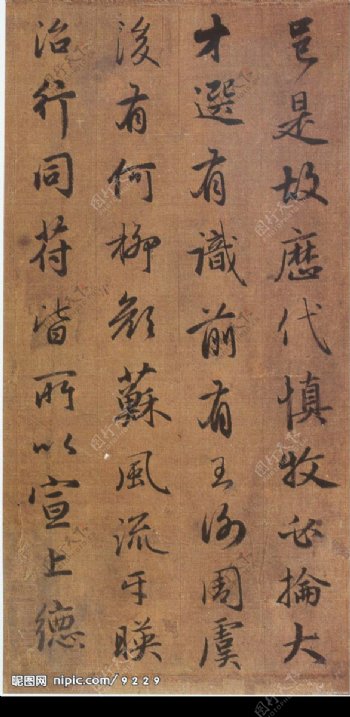 邑是故歷代慎牧必掄大
才選有識前有王謝周虞
後有何柳顏蘇風流乎暎
治行同符皆所以宣上德
昵图网 nipic.com/9229